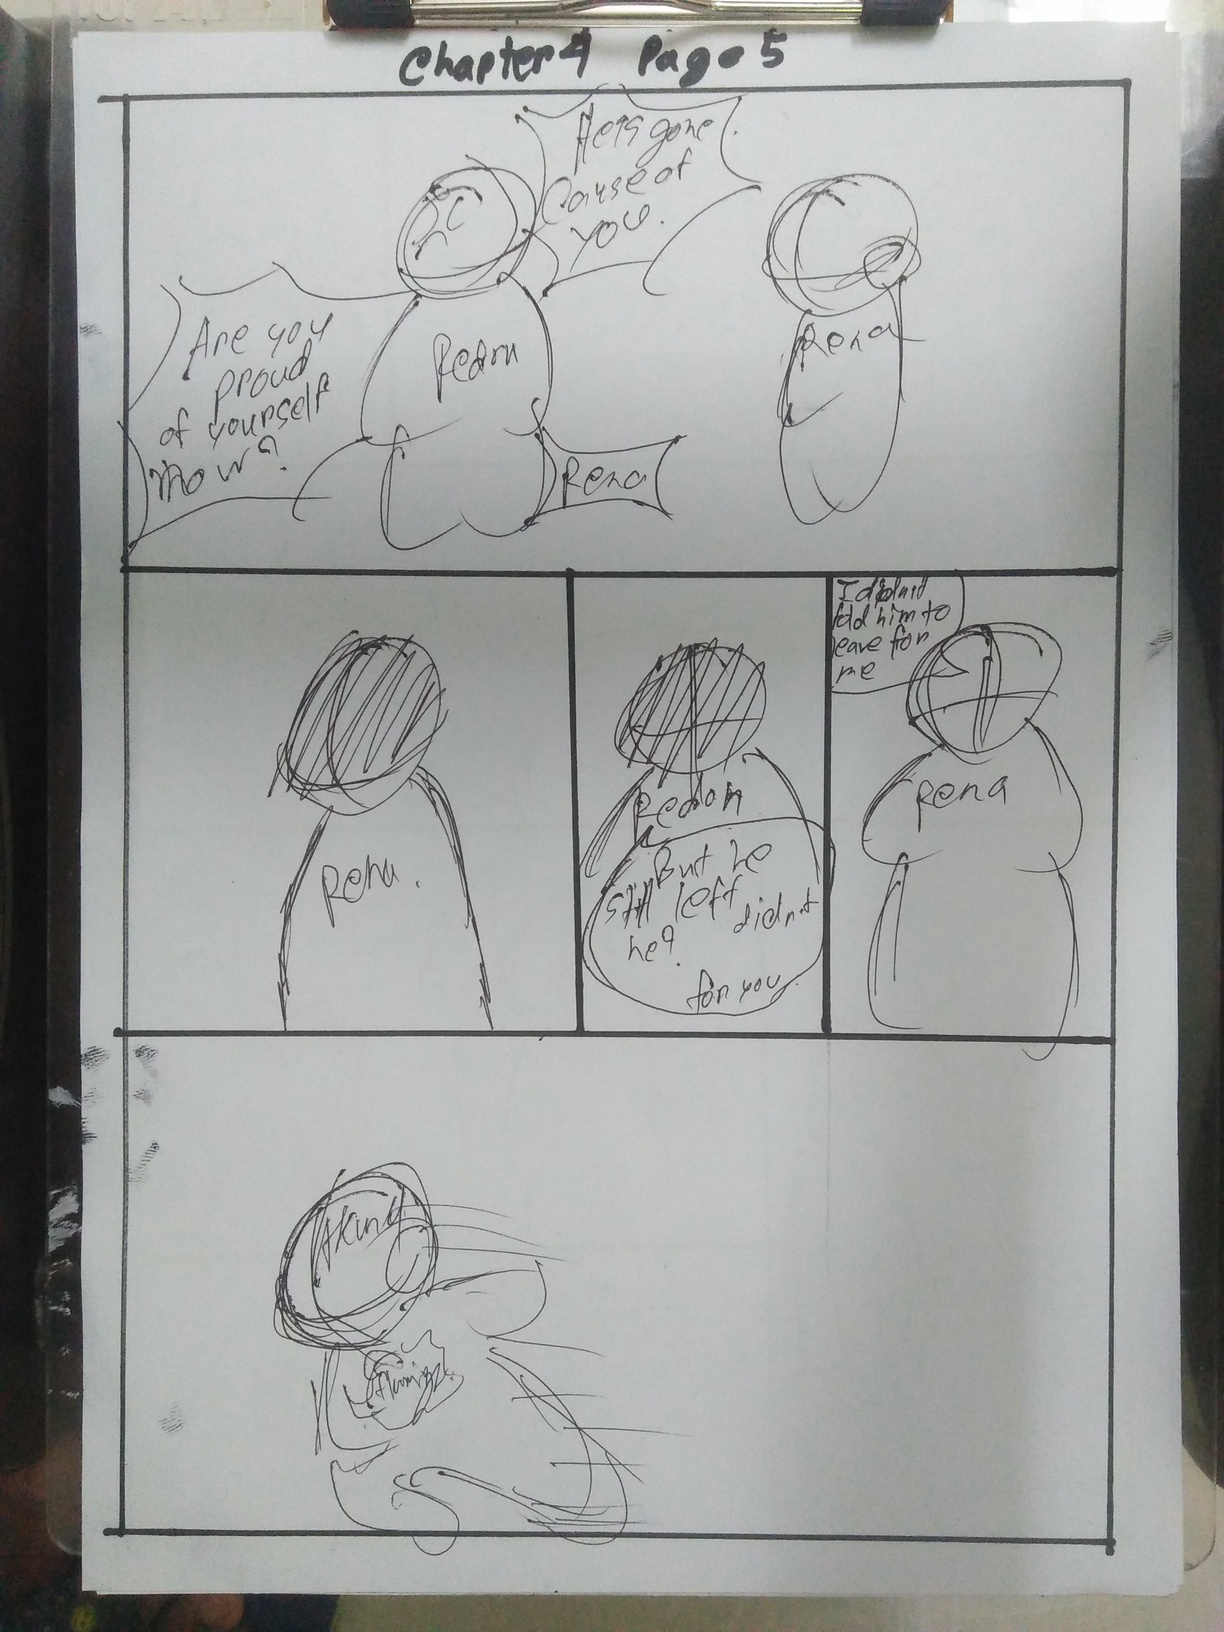 Chapter 4 Page 5
He is gone
Cause of
you.
Are you
proud
of yourself
now?
Redon
Rena
Rena
Rena.
Redon
But he
still left didnot
he?
for you
I didnit
told him to
leave for
me
Rena
Akind